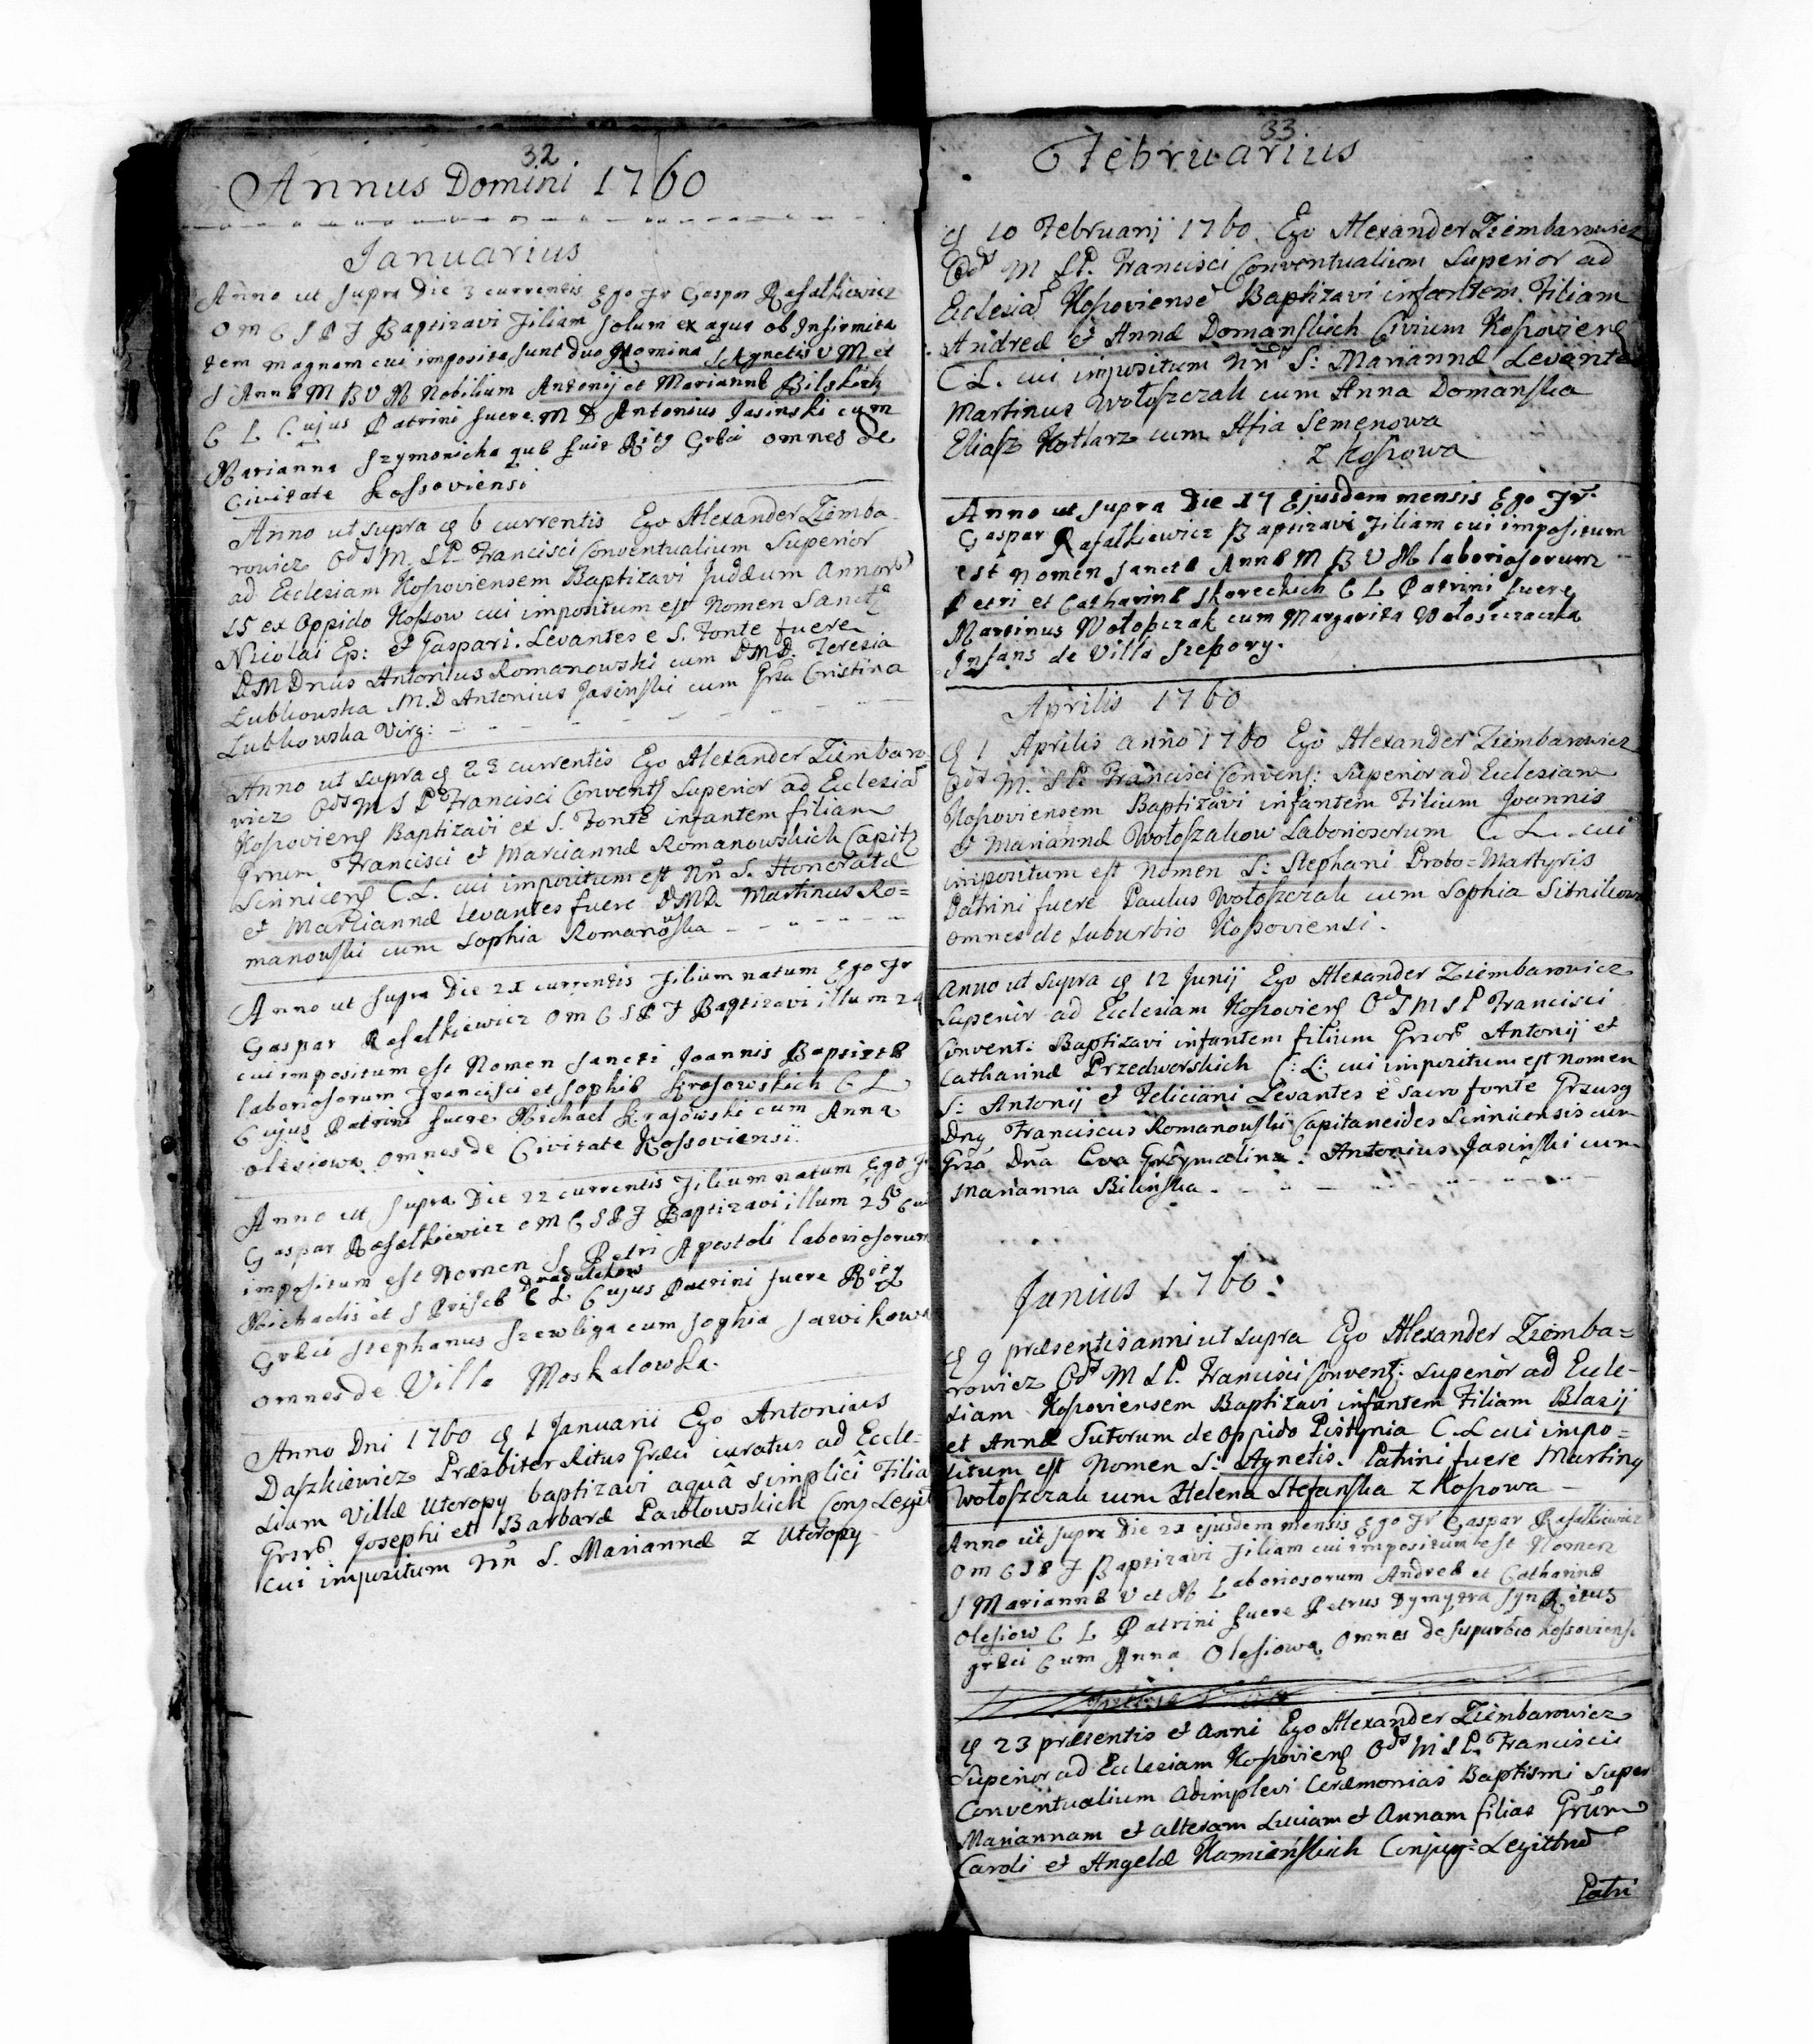 32
Annus Domini 1760
Januarius
Anno ut supra Die 3 currentis Ego Fr Gaspar Rafalkiewicz
O M C S P F Baptizavi Filiam solum ex aqua ob Infirmita
tem magnam cui imposita sunt duo Nomina S Agnetis V M et
S Annæ M B V M Nobilium Antonij et Mariannæ Bilskich
C L Cujus Patrini fuere M D Antonius Jasinski cum
Marianna Szymonicha quæ fuit Ritg Græci omnes de
Civitate Kossoviensi
Anno ut supra 6 currentis Ego Alexander Ziemba
rowicz Ords M. S P. Francisci Conventualium Superior
ad Ecclesiam Kossoviensem Baptizavi Judæum Annor
15 ex Oppido Kossow cui impositum est Nomen Sancte
Nicolai Ep: et Gaspari. Levantes e S. Fonte fuere
D. M Dnus Antonius Romanowski cum D. M D. Teresia
Łubkowska M. D Antonius Jasinski cum Grsa Cristina
Lubkowska Virg:
Anno ut supra 23 currentis Ego Alexander Ziembaro
wicz Ords M S P Francisci Convent Superior ad Ecclesia
Kossoviens Baptizavi ex S. Fonte infantem filiam
Grnum Francisci et Marciannæ Romanowskich Capit
Sinnicens C. L. cui impositum est Nn S. Honoratæ
et Marciannæ Levantes fuere D. M D. Martinus Ro=
manowski cum Sophia Romanoska
Anno ut supra Die 21 currentis Filium natum Ego Fr
Gaspar Rafalkiewicz O M C S P F Baptizavi illum 24
cui impositum est Nomen Sancti Joannis Baptistæ
laboriosorum Francisci et Sophiæ Krasowskich C L
Cujus Patrini fuere Michael Krasowski cum Anna
Olesiowa omnes de Civitate Kossoviensi
Anno ut supra Die 22 currentis Filium natum Ego Fr
Gaspar Rafalkiewicz O M C S P F Baptizavi illum 25 Cui
impositum est Nomen S Petri Apostoli laboriosorum
Michaelis et S Priscæ Draduletow C L Cujus Patrini fuere Ritg
Græci Stephanus Szewliga cum Sophia Sawikowa
omnes de Villa Moskalowka.
Anno Dni 1760 1 Januarii Ego Antonius
Daszkiewicz Præsbiter Ritus Græci curatus ad Eccle-
siam Villæ Uteropy baptizavi aquâ simplici Filia
Grsrb Josephi et Barbaræ Pawłowskich Conj Legit
cui impositum Nn S. Mariannæ z Uteropy
33
Februarius
10 Februarij 1760 Ego Alexander Ziembarowicz
Ords M S P. Francisci Conventualium Superior ad
Ecclesia Kossoviense Baptizavi infantem Filiam
Andreæ et Annæ Domanskich Civium Kossoviens
C. L. cui impositum Nn S: Mariannæ Levante
Martinus Wołoszczak cum Anna Domanska
Eliasz Kotlarz cum Afia Semenowa
z Kossowa
Anno ut supra Die 17 Ejusdem mensis Ego Fr.
Gaspar Rafalkiewicz Baptizavi Filiam cui impositum
est nomen Sanctæ Annæ M B V M laboriosorum
Petri et Catharinæ Skoreckich C L Patrini fuere
Martinus Wołoszczak cum Margarita Wołoszczaczka
Infans de Villa Szepory.
Aprilis 1760
1 Aprilis anno 1760 Ego Alexander Ziembarowicz
Ords M. S P. Francisci Convens: Superior ad Ecclesiam
Kossoviensem Baptizavi infantem Filium Joannis
et Mariannæ Wołoszakow Laboriosorum C. L. cui
impositum est Nomen S: Stephani Proto=Martyris
Patrini fuere Paulus Wołoszczak cum Sophia Sitnikow
omnes de suburbio Kossoviensi.
Anno ut supra 12 Junij Ego Alexander Ziembarowicz
Superior ad Ecclesiam Kossoviens Ords M S P Francisci
Convent: Baptizavi infantem filium Grsorb Antonij et
Catharinæ Przedworskich C: L: cui impositum est nomen
S: Antonij et Feliciani Levantes e sacro fonte Grsusg
Dng Franciscus Romanowski Capitaneides Sinnicensis cum
Grsa Dna Eva Grzymalina. Antonius Jasinski cum
Marianna Bilinska
Junius 1760:
9 præsentis anni ut supra Ego Alexander Ziemba=
rowicz Ords M S P. Francisci Convent: Superior ad Eccle-
siam Kossoviensem Baptizavi infantem Filiam Blasij
et Annæ Sutorum de Oppido Pistynia C. L cui impo=
situm est Nomen S: Agnetis. Patrini fuere Marting
Wołoszczak cum Helena Stefanska z Kossowa
Anno ut supra Die 21 ejusdem mensis Ego Fr Gaspar Rafalkiewicz
O M C S P F Baptizavi Filiam cui impositum est Nomen
S Mariannæ V et M Laboriosorum Andreæ et Catharinæ
Olesiow C L Patrini fuere Petrus Dymytra syn Ritus
græci Cum Anna Olesiowa Omnes de supurbio Kossoviensi
23 præsentis et Anni Ego Alexander Ziembarowicz
Superior ad Ecclesiam Kossoviens Ords M S P. Francisci
Conventualium Adimplevi Ceræmonias Baptismi super
Mariannam et alteram Luciam et Annam filias Grum
Caroli et Angelæ Kamieńskich Conjug: Legitim
Patri